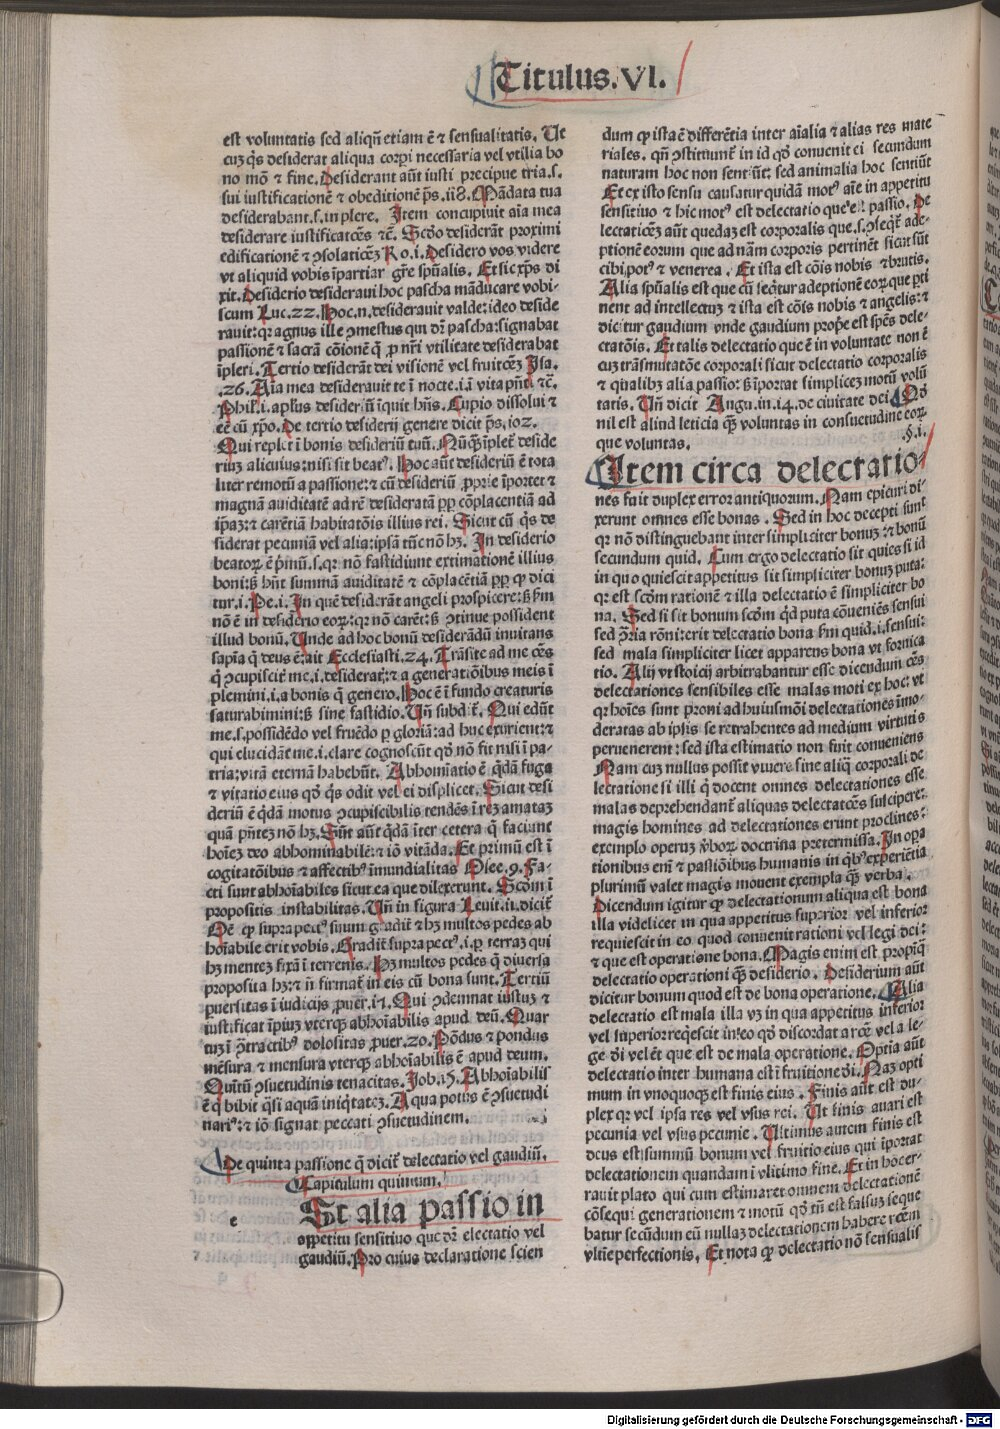 Titulus.VI.
est voluntatis sed aliqñ etiam ē ⁊ sensualitatis. Ut
cuȝ q̄s desiderat aliqua corpi necessaria vel vtilia bo
no mō ⁊ fine. Desiderant aūt iusti precipue tria.s.
sui iustificationē ⁊ obeditionē p̄s.ii8. Mādata tua
desiderabant.s.inplere. Item concupiuit aīa mea
desiderare iustificatōes ⁊c̄. Scd̄o desiderāt proximi
edificationē ⁊ ꝯsolatiōeȝ Ro.i. Desidero vos videre
vt aliquid vobis īpartiar grē spūalis. Et sic xp̄s di
xit. Desiderio desideraui hoc pascha māducare vobi-
scum Luc.22. Hoc.n.desiderauit valde: ideo deside
rauit: qꝛ agnus ille ꝯmestus qui dr̄ pascha: signabat
passionē ⁊ sacrā cōionē q̄ ꝓ nr̄i vtilitate desiderabat
īpleri. Tertio desiderāt dei visionē vel fruitōeȝ Isa.
.26. Aīa mea desiderauit te ī nocte.i.ī vita pn̄ti ⁊c̄.
Phil.i. apl̄us desideriū īquit hn̄s. Cupio dissolui ⁊
eē cū xp̄o. De tertio desiderij genere dicit p̄s.io2.
Qui replet ī bonis desideriū tuū. Nūq̄ꝫ īplet̄ deside
riuȝ alicuius: nisi sit beatꝰ. Hoc aūt desideriū ē tota
liter remotū a passione: ⁊ cū desideriū ꝓprie īportet ⁊
magnā auiditatē ad rē desideratā ꝓp cōplacentiā ad
ip̄aȝ: ⁊ carētiā habitatōis illius rei. Sicut cū q̄s de
siderat pecuniā vel alia: ipsā tūc nō hȝ. In desiderio
beatoꝝ ē p̄mū.s.qꝛ nō fastidiunt extimationē illius
boni: sȝ hn̄t summā auiditatē ⁊ cōplacētiā ꝓp q̄ dici
tur.i.Pe.i. In quē desiderāt angeli prospicere: sȝ s̄m
nō ē in desiderio eoꝝ: qꝛ nō carēt: sȝ ꝯtinue possident
illud bonū. Unde ad hoc bonū desiderādū inuitans
sapīa q̄ deus ē: ait Ecclesiasti.24. Trāsite ad me oēs
q̄ ꝯcupiscit̄ me.i.desiderat̄: ⁊ a generatiōibus meis ī
plemini.i.a bonis q̄ genero. Hoc ē ī fundo creaturis
saturabimini: sȝ sine fastidio. Uñ subdit̄. Qui edūt
me.s.possidēdo vel fruēdo p gloriā: ad huc exurient: ⁊
qui elucidāt me.i.clare cognoscūt qd̄ nō fit nisi ī pa-
tria: vitā eternā habebūt. Abhoīatio ē q̄dā fuga
⁊ vitatio eius qd̄ q̄s odit vel ei displicet. Sicut desi
deriū ē q̄dā motus ꝯcupiscibilis tendēs ī reȝ amataȝ
quā pn̄tez nō hȝ. Sūt aūt q̄dā īter cetera q̄ faciunt
hoīeȝ deo abhominabilē: ⁊ iō vitāda. Et primū est ī
cogitatōibus ⁊ affectibꝰ īmundialitas Osee.9. Fa-
cti sunt abhoīabiles sicut ea que dilexerunt. Scd̄m ī
propositis instabilitas. Uñ in figura Leuit.ii.dicit̄
Oē ꝙ supra pectꝰ suum gradit̄ ⁊ hȝ multos pedes ab
hoīabile erit vobis. Gradit̄ supra pectꝰ.i.p terraȝ qui
hȝ menteȝ fixā ī terrenis. Hȝ multos pedes q̄ diuersa
proposita hȝ: ⁊ ñ firmat̄ in eis cū bona sunt. Tertiū
puersitas ī iudicijs ꝓuer.i7. Qui ꝯdemnat iustuȝ ⁊
iustificat īpiuȝ vterqȝ abhoīabilis apud deū. Quar
tuȝ ī ꝯtractibꝰ dolositas ꝓuer.20. Pōdus ⁊ pondus
mēsura ⁊ mensura vterqȝ abhoīabilis ē apud deum.
Quītū ꝯsuetudinis tenacitas. Job.i5. Abhoīabilis
ē q̄ bibit q̄si aquā iniq̄tateȝ. Aqua potus ē ꝯsuetudi
nariꝰ: ⁊ iō signat peccati ꝯsuetudinem.
De quinta passione q̄ dicit̄ delectatio vel gaudiū.
Capitulum quintum.
e
St alia passio in
appetitu sensitiuo que dr̄ electatio vel
gaudiū. Pro cuius declaratione scien
dum ꝙ ista ē differētia inter aīalia ⁊ alias res mate
riales. qñ ꝯstituunt̄ in id qd̄ conuenit ei secundum
naturam hoc non sentiūt: sed animalia hoc sentiūt
Et ex isto sensu causatur quidā motꝰ aīe in appetitu
sensitiuo ⁊ hic motꝰ est delectatio que ē passio. De
lectatiōeȝ aūt quedaȝ est corporalis que.s.ꝯseqt̄ ade-
ptionē eorum que ad nām corporis pertinēt sicut sūt
cibi.potꝰ ⁊ venerea. Et ista est cōis nobis ⁊ brutis.
Alia spūalis est que cū seq̄tur adeptionē eoꝝ que pti
nent ad intellectuȝ ⁊ ista est cōis nobis ⁊ angelis: ⁊
dicitur gaudium vnde gaudium prop̄e est sp̄es dele-
ctatōis. Et talis delectatio que ē in voluntate non ē
cuȝ trāsmutatōe corporali sicut delectatio corporalis
⁊ qualibȝ alia passio: sȝ īportat simpliceȝ motū volū
tatis. Uñ dicit Augu.in.i4.de ciuitate dei. Qd̄
nil est aliud leticia q̄ꝫ voluntas in consuetudine eoꝝ
que voluntas.
.§.i.
Item circa delectatio-
nes fuit duplex error antiquorum. Nam epicuri di-
xerunt omnes esse bonas. Sed in hoc decepti sunt
qꝛ nō distinguebant inter simpliciter bonuȝ: ⁊ bonū
secundum quid. Cum ergo delectatio sit quies si id
in quo quiescit appetitus sit simpliciter bonuȝ puta:
qꝛ est scd̄m rationē ⁊ illa delectatio ē simpliciter bo
na. Sed si sit bonum scd̄m qd̄ puta cōueniēs sensui
sed ꝯtraria rōni: erit delectatio bona s̄m quid.i.sensui:
sed mala simpliciter licet apparens bona vt fornica
tio. Alij vt stoici arbitrabantur esse dicendum oēs
delectationes sensibiles esse malas moti ex hoc: vt
qꝛ hoīes sunt proni ad huiusmōi delectationes īmo-
deratas ab ipsis se retrahentes ad medium virtutis
peruenerent: sed ista estimatio non fuit conueniens
Nam cuȝ nullus possit viuere sine aliq̄ corporali de
lectatione si illi q̄ docent omnes delectationes esse
malas deprehendant̄ aliquas delectatōes suscipere:
magis homines ad delectationes erunt procliues:
exemplo operuȝ v̄boꝝ doctrina pretermissa. In opa
tionibus em̄ ⁊ passiōibus humanis in q̄bꝰ experiētia
plurimū valet magis mouent exempla q̄ꝫ verba.
Dicendum igitur ꝙ delectationum aliqua est bona
illa videlicet in qua appetitus superior vel inferior
requiescit in eo quod conuenit rationi vel legi dei:
⁊ que est operatione bona. Magis enim est propīq̄
delectatio operationi q̄ꝫ desiderio. Desiderium aūt
dicitur bonum quod est de bona operatione. Alia
delectatio est mala illa vȝ in qua appetitus inferior
vel superior reqescit in eo qd̄ discordat a rōe vel a le-
ge di vel ēt que est de mala operatione. Optia aūt
delectatio inter humana est ī fruitione di. Naȝ opti
mum in vnoquoqȝ est finis eius. Finis aūt est du-
plex qꝛ vel ipsa res vel vsus rei. Ut finis auari est
pecunia vel vsus pecunie. Ultimus autem finis est
deus est summū bonum vel fruitio eius qui īportat
delectationem quandam ī vltimo fine. Et in hoc er-
rauit plato qui cum estimaret omnem delectationē
cōsequi generationem ⁊ motū qd̄ tn̄ est falsuȝ seque
batur secūdum eū nullaȝ delectationem habere rōem
vltīe perfectionis. Et nota ꝙ delectatio nō sensualis
Digitalisierung gefördert durch die Deutsche Forschungsgemeinschaft - DFG